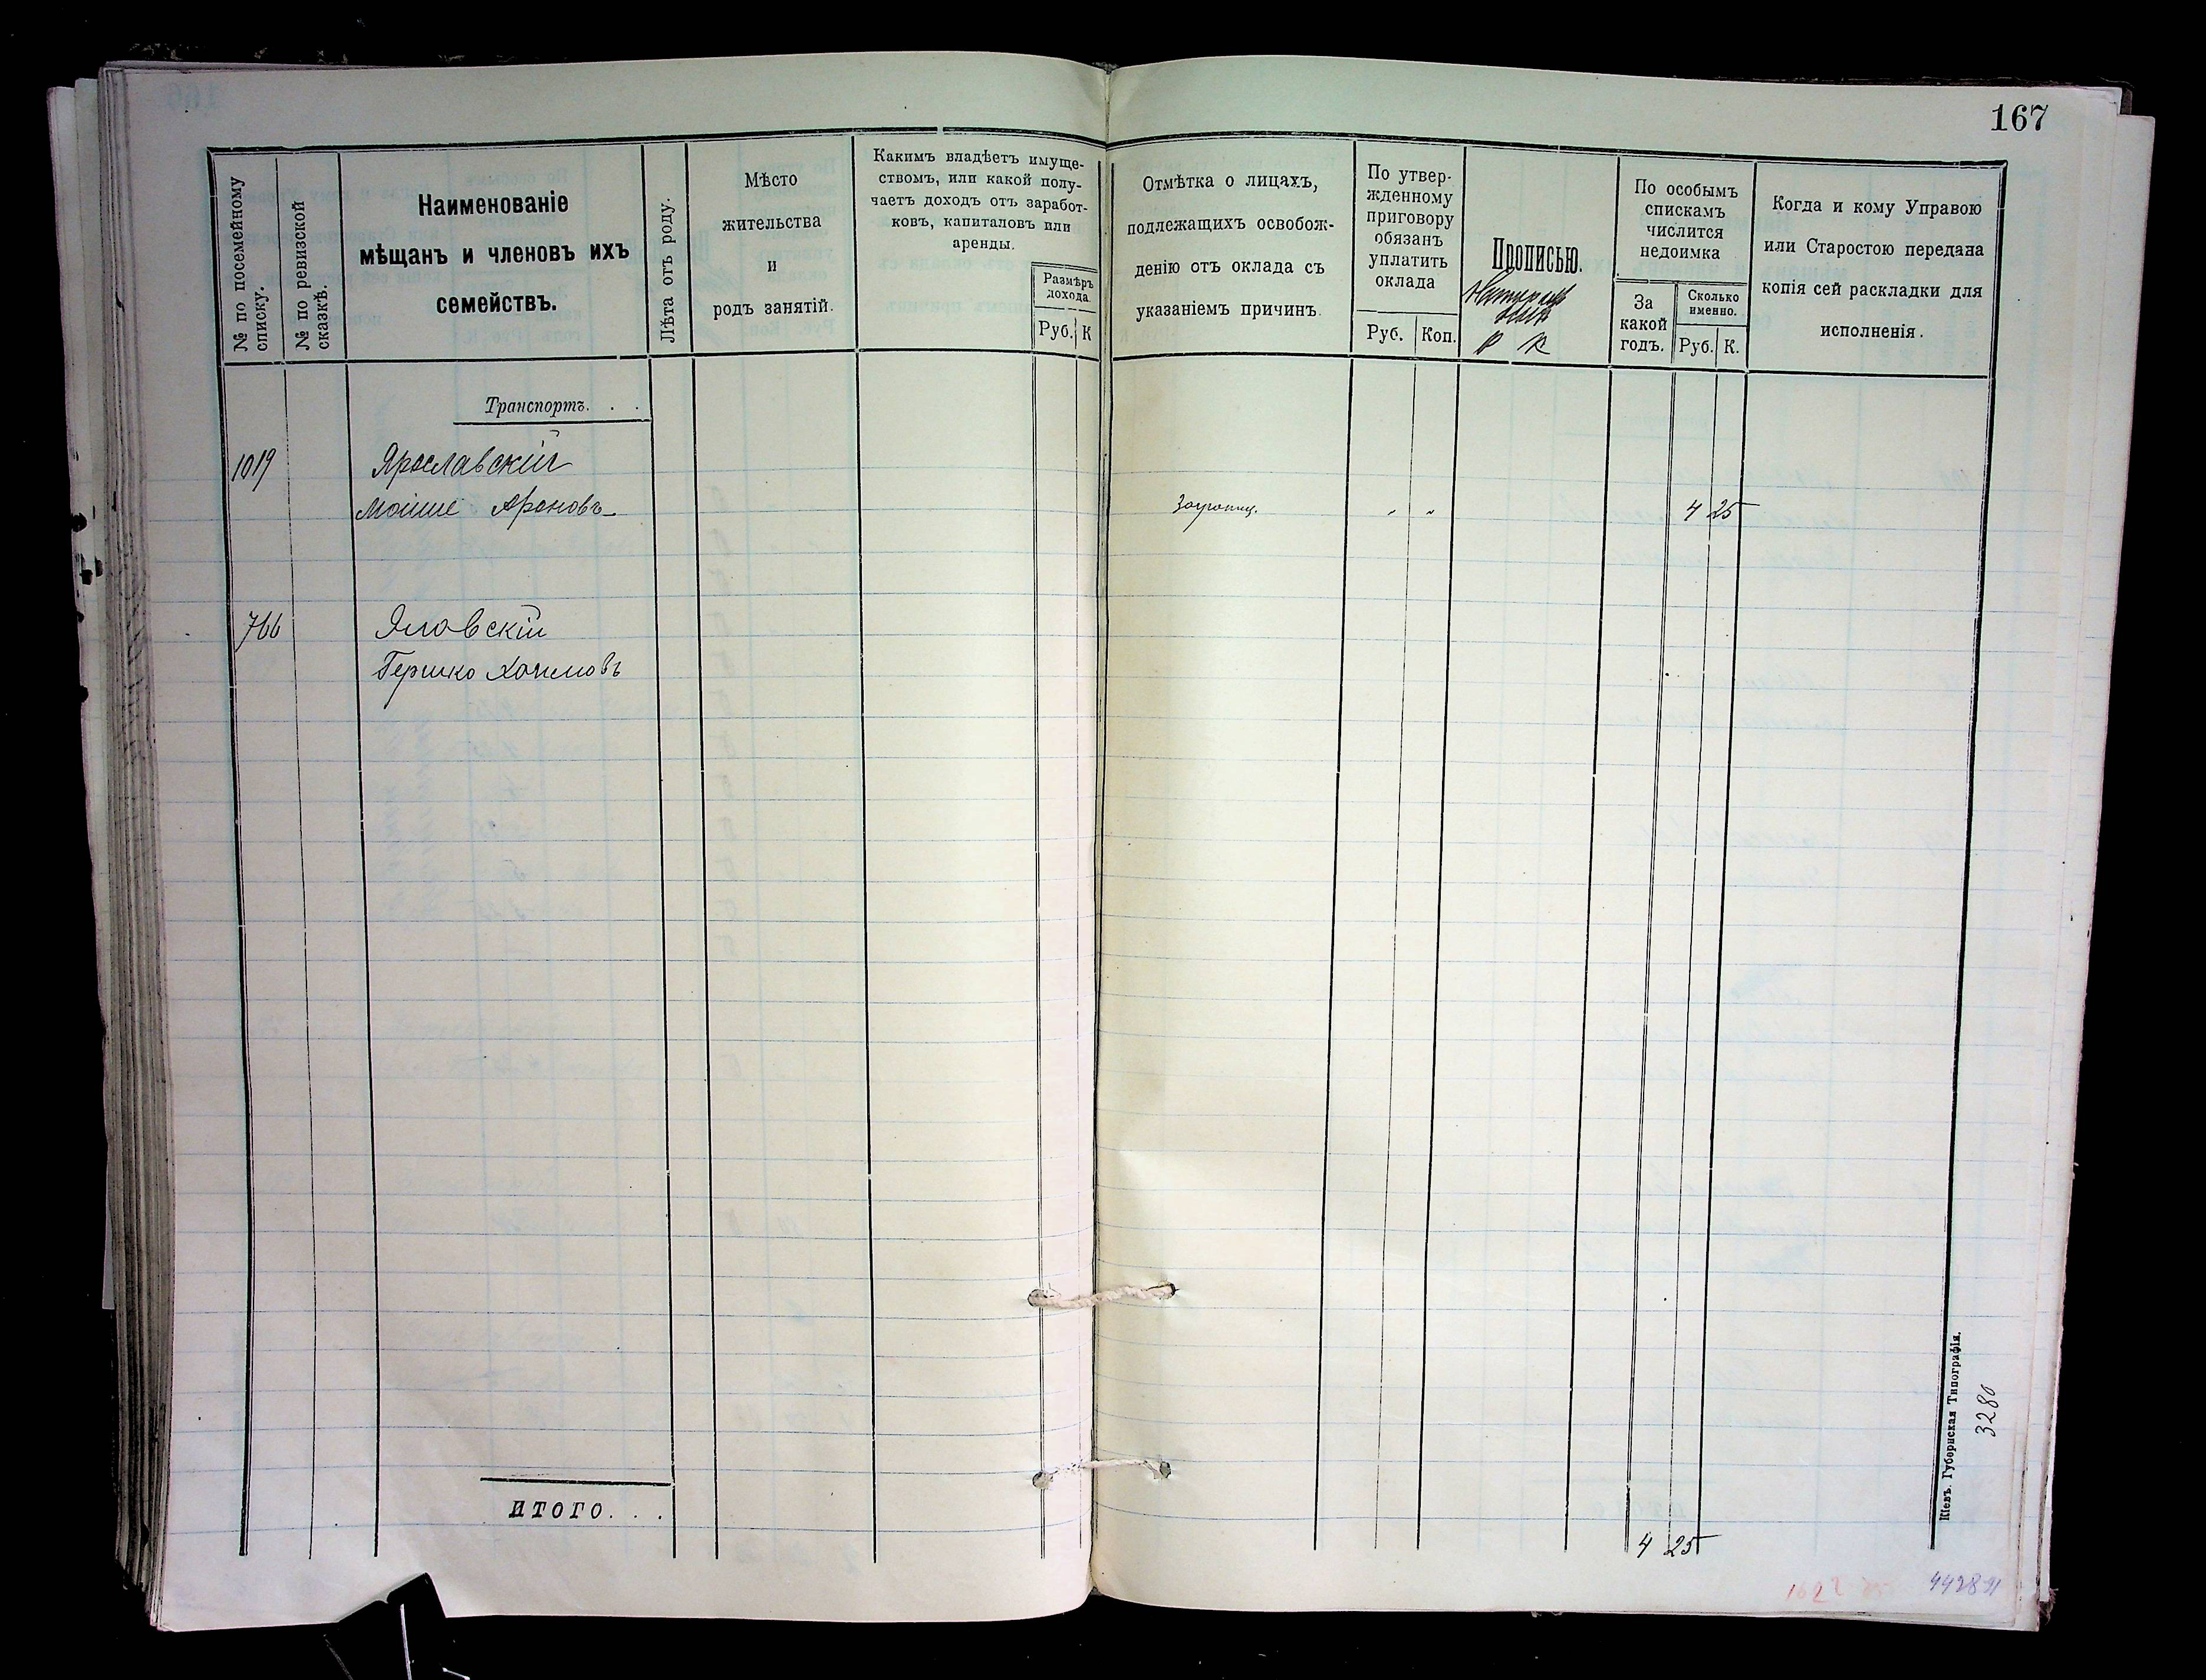 167
№ по посемейному
списку.
№ по ревизской
сказкѣ.
Наименованіе
мѣщанъ и членовъ ихъ
семействъ.
Лѣта отъ роду.
Мѣсто
жительства
и
родъ занятій.
Какимъ владѣетъ имуще-
ствомъ, или какой полу-
чаетъ доходъ отъ заработ-
ковъ, капиталовъ или
аренды.
Размѣръ
дохода
Руб. К
Отмѣтка о лицахъ,
подлежащихъ освобож-
денію отъ оклада съ
указаніемъ причинъ.
По утвер-
жденному
приговору
обязанъ
уплатить
оклада
Руб. Коп.
Прописью.
Р К
По особымъ
спискамъ
числится
недоимка
За
какой
годъ.
Сколько
именно.
Руб. К.
Когда и кому Управою
или Старостою передана
копія сей раскладки для
исполненія.
Транспортъ. . .
1019 Ярославскій
Мойше Ароновъ 4 25
766 Яловскій
Гершко Хаимовъ
ИТОГО. . .
4 25
Кіевъ. Губернская Типографія.
3280